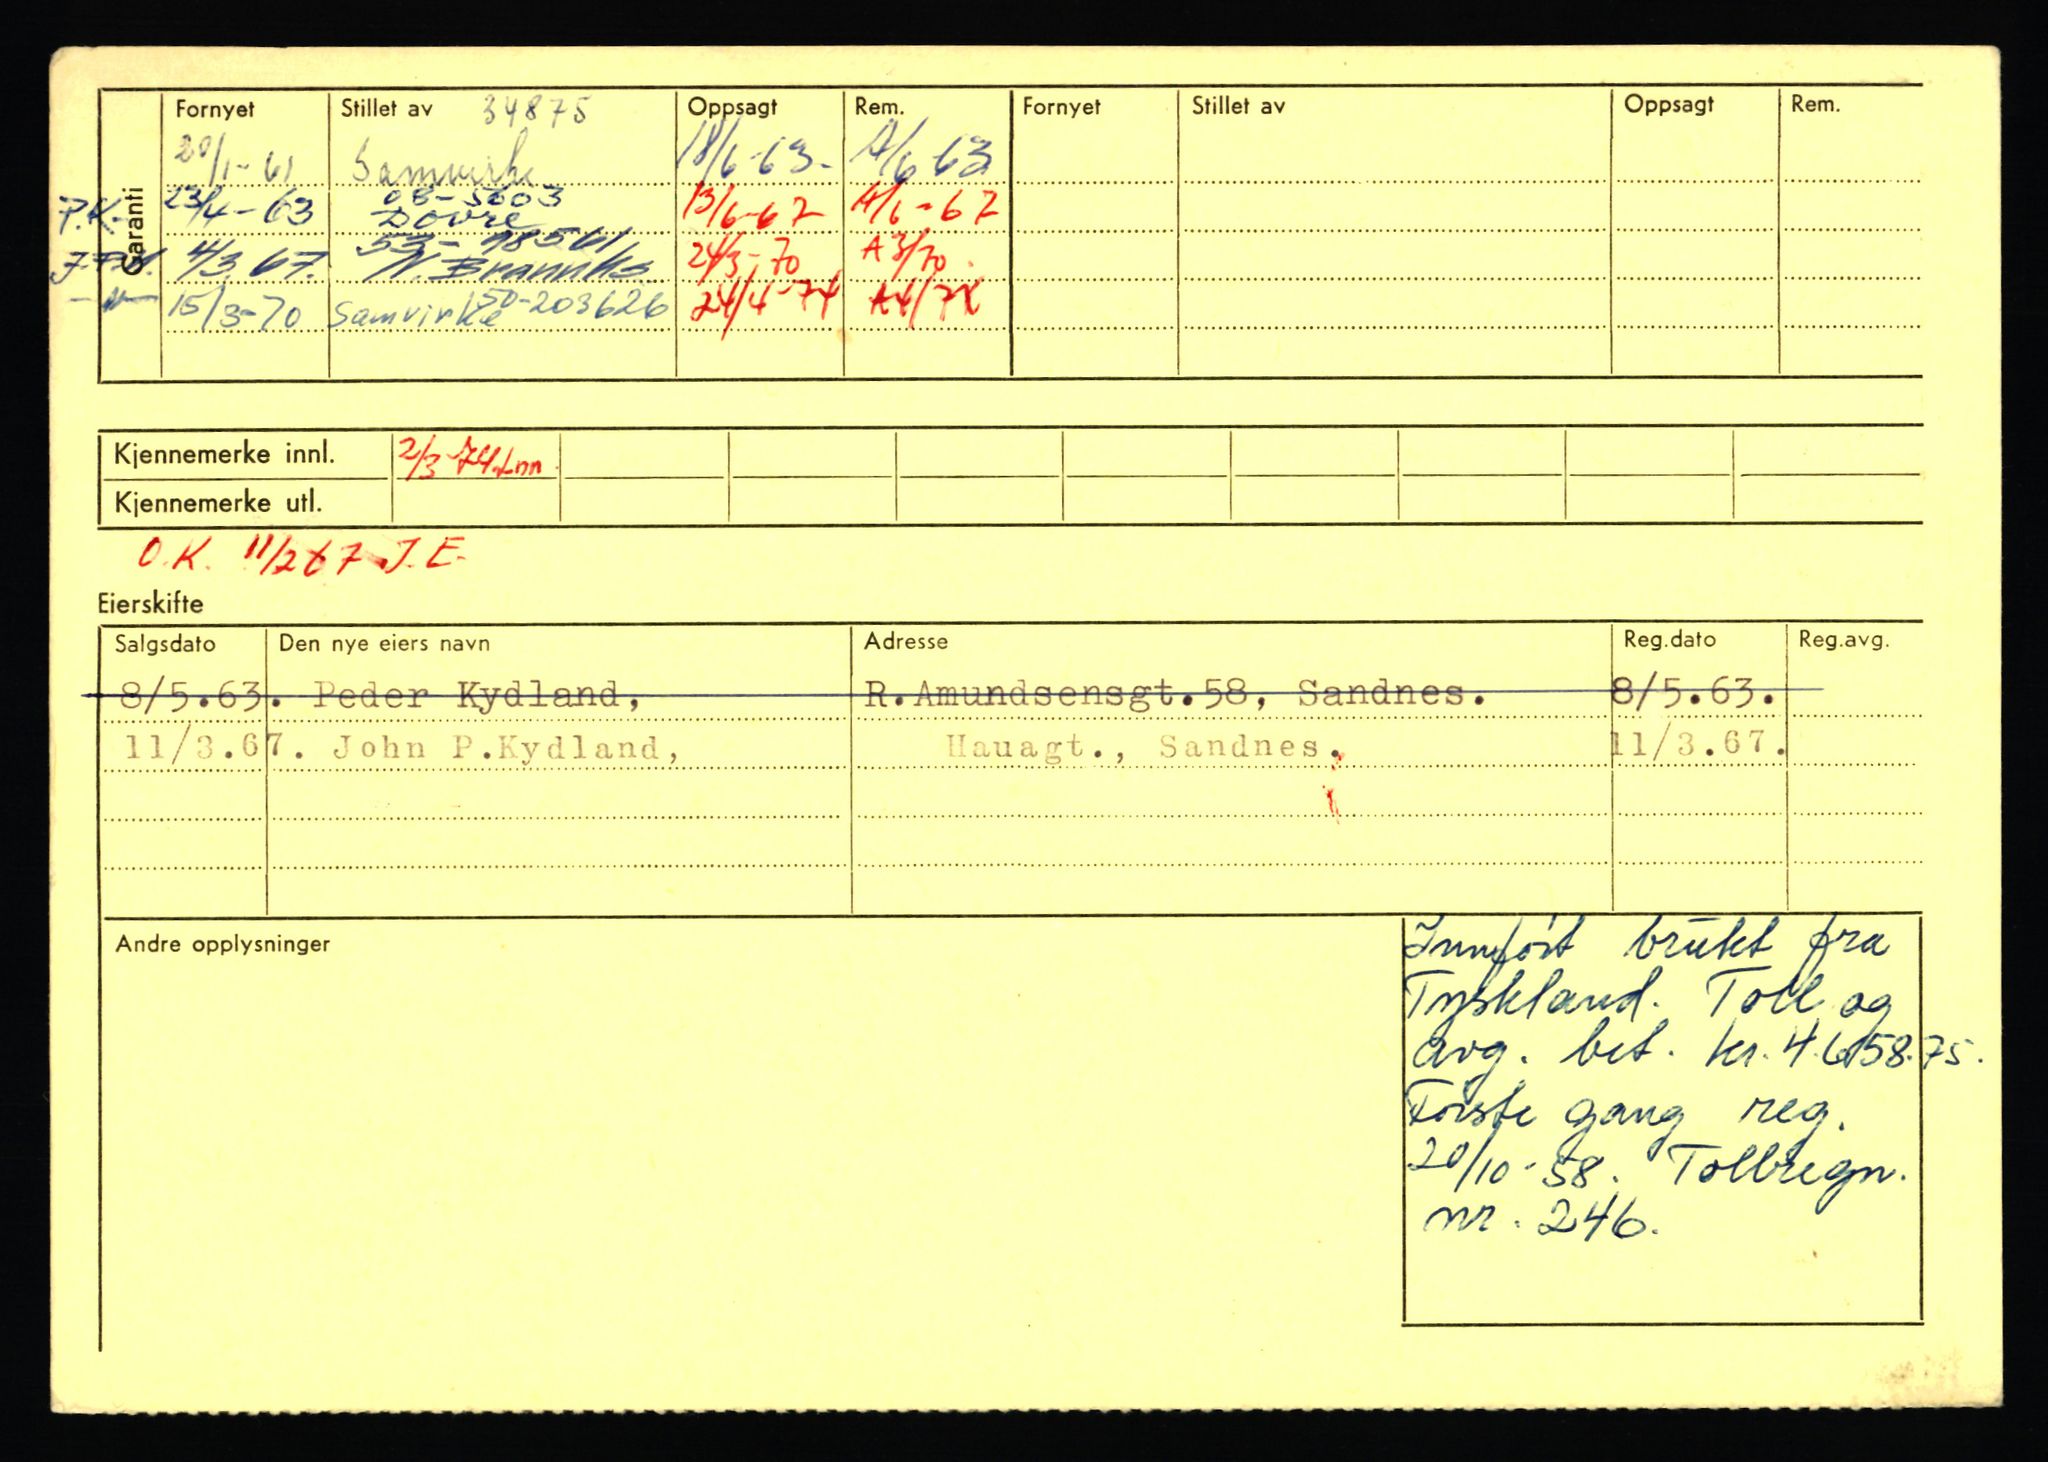 Garanti
Fornyet Stillet av 34875 Oppsagt Rem. Fornyet Stillet av Oppsagt Rem.
20/1-61 Samvirke 18/6-63- A/6 63
P.K. 23/4-63 08-5003 Dovre 13/6-67 A/6-67
4/3 67. 53-78561 N. Brannks 24/3-70 A3/70
15/3-70 Samvirke 50-203626 24/4-74
Kjennemerke innl. 2/3 74
Kjennemerke utl.
O.K. 11/2 67 J.E.
Eierskifte
Salgsdato Den nye eiers navn Adresse Reg.dato Reg.avg.
8/5.63. Peder Kydland, R.Amundsensgt.58, Sandnes. 8/5.63.
11/3.67. John P.Kydland, Hauagt., Sandnes. 11/3.67.
Andre opplysninger
Innført brukt fra
Tyskland. Toll og
avg. bet. kr. 4.658.75.
Første gang reg.
20/10-58. Tollregn.
nr. 246.